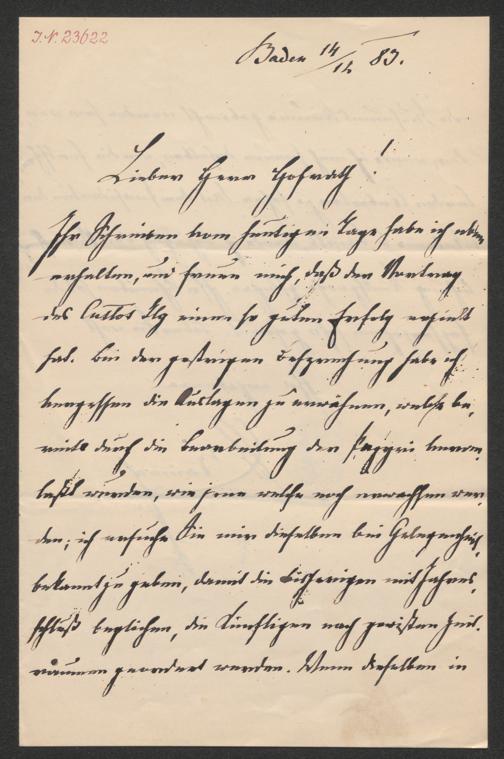 J.N. 23622
Baden 14/12 83.
Lieber Herr Hofrath!
Ihr Schreiben vom heutigen Tage habe ich eben
erhalten, und freue mich, daß der Vortrag
des Custos Ilg einen so guten Erfolg erzielt
hat. Bei der gestrigen Besprechung habe ich
vergessen die Auslagen zu erwähnen, welche be-
reits durch die Bearbeitung der Papyri veran-
laßt wurden, wie jene welche noch erwachsen wer-
den; ich ersuche Sie mir dieselben bei Gelegenheit
bekannt zu geben, damit die bisherigen mit Jahres-
schluß beglichen, die künftigen nach gewissen Zeit-
räumen geordnet werden. Wenn dieselben in